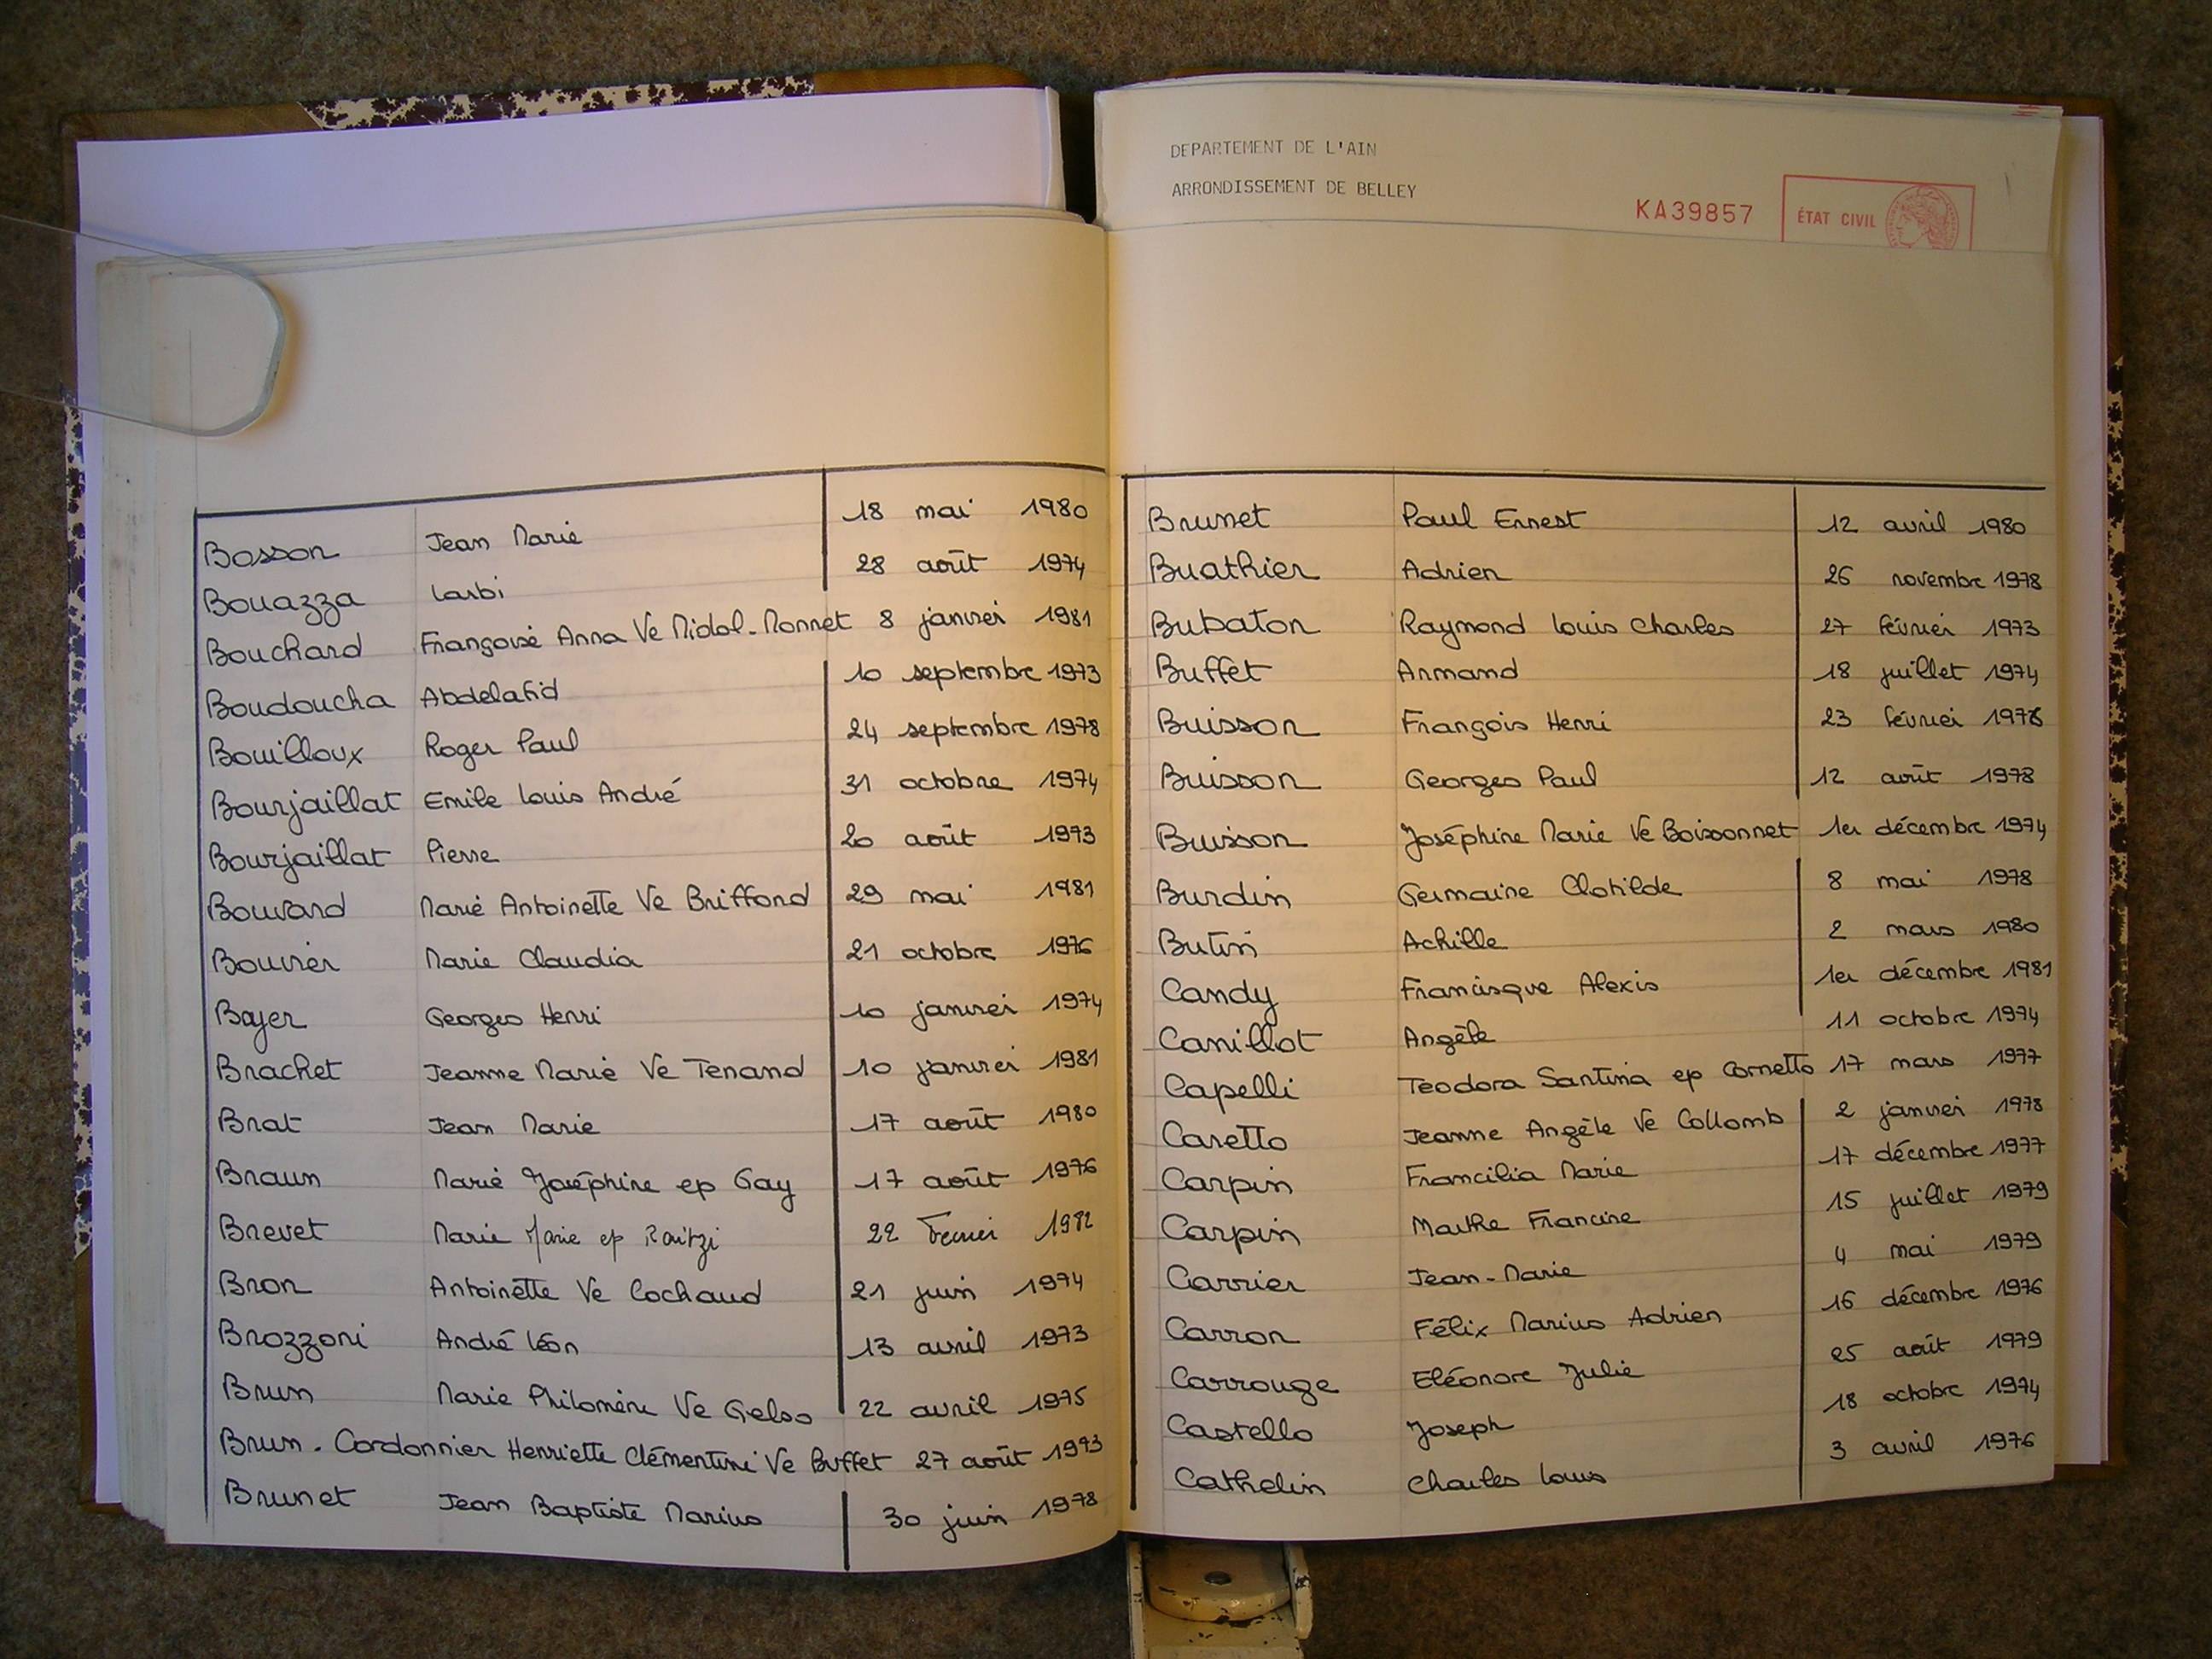 DEPARTEMENT DE L'AIN
ARRONDISSEMENT DE BELLEY
KA39857
ÉTAT CIVIL
Bosson Jean Marie 18 mai 1980
Bouazza Larbi 28 août 1974
Bouchard Françoise Anna Ve Nidol-Monnet 8 janvier 1981
Boudoucha Abdelafid 10 septembre 1973
Bouilloux Roger Paul 24 septembre 1978
Bourjaillat Emile Louis André 31 octobre 1974
Bourjaillat Pierre 20 août 1973
Bouvard Marie Antoinette Ve Briffond 29 mai 1981
Bouvier Marie Claudia 21 octobre 1976
Boyer Georges Henri 10 janvier 1974
Brachet Jeanne Marie Ve Tenand 10 janvier 1981
Brat Jean Marie 17 août 1980
Braun Marie Joséphine ep Gay 17 août 1976
Brevet Marie ep 22 Fevrier 1982
Bron Antoinette Ve Cochaud 21 juin 1974
Brozzoni André Léon 13 avril 1973
Brun Marie Philomène Ve Gelso 22 avril 1975
Brun-Cordonnier Henriette Clémentine Ve Buffet 27 août 1973
Brunet Jean Baptiste Marius 30 juin 1978
Brunet Paul Ernest 12 avril 1980
Buathier Adrien 26 novembre 1978
Bubaton Raymond Louis Charles 27 février 1973
Buffet Armand 18 juillet 1974
Buisson François Henri 23 février 1976
Buisson Georges Paul 12 août 1978
Buisson Joséphine Marie Ve Boissonnet 1er décembre 1974
Burdin Germaine Clotilde 8 mai 1978
Butin Achille 2 mars 1980
Candy Francisque Alexis 1er décembre 1981
Canillot Angèle 11 octobre 1974
Capelli Teodora Santina ep Cornetto 17 mars 1977
Caretto Jeanne Angèle Ve Collomb 2 janvier 1978
Carpin Francilia Marie 17 décembre 1977
Carpin Marthe Francine 15 juillet 1979
Carrier Jean-Marie 4 mai 1979
Carron Félix Marius Adrien 16 décembre 1976
Carrouge Eléonore Julie 25 août 1979
Castello Joseph 18 octobre 1974
Cathelin Charles Louis 3 avril 1976